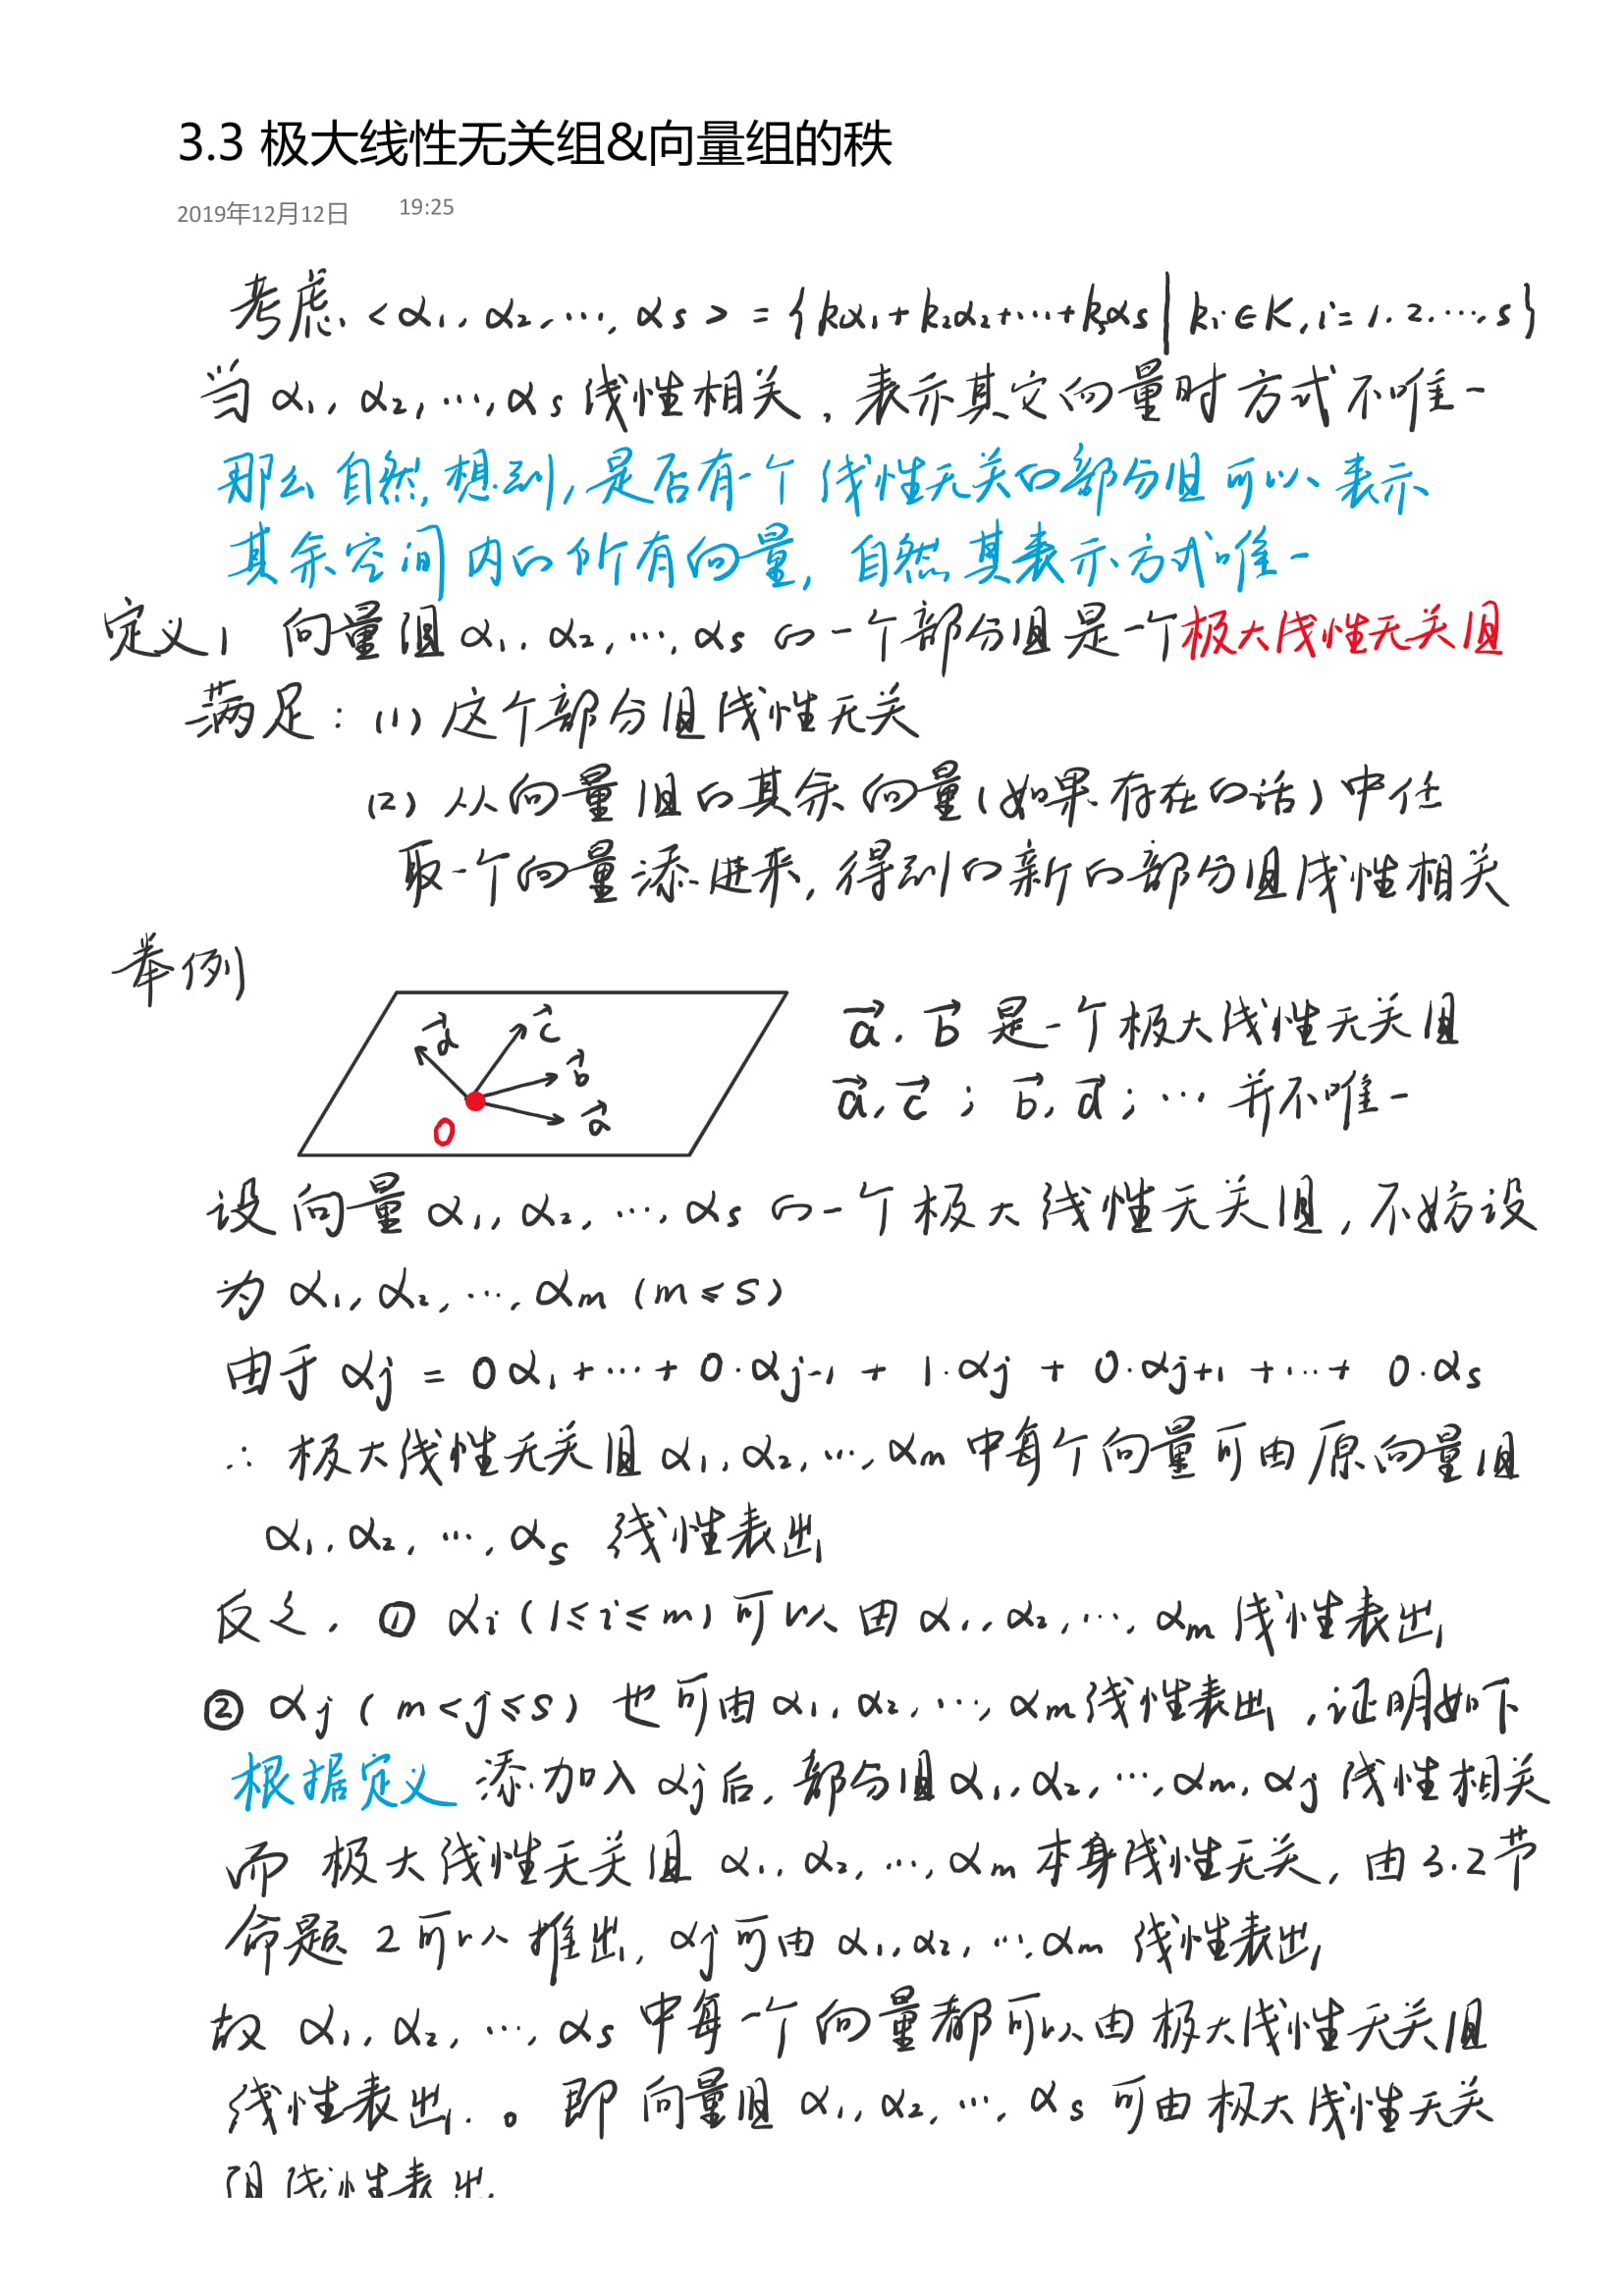 3.3 极大线性无关组&向量组的秩
2019年12月12日 19:25
考虑 <α₁, α₂, ⋯, αs> = {k₁α₁+k₂α₂+⋯+ksαs | ki∈K, i=1.2.⋯,s}
当 α₁, α₂, ⋯, αs 线性相关, 表示其它向量时方式不唯一
那么自然想到, 是否有一个线性无关的部分组可以表示
其余空间内的所有向量, 自然其表示方式唯一
定义1 向量组 α₁, α₂, ⋯, αs 的一个部分组是一个极大线性无关组
满足: (1) 这个部分组线性无关
(2) 从向量组的其余向量(如果存在的话)中任
取一个向量添进来, 得到的新的部分组线性相关
举例
d⃗ c⃗ b⃗ a⃗ O
a⃗, b⃗ 是一个极大线性无关组
a⃗, c⃗ ; b⃗, d⃗ ; ⋯ 并不唯一
设向量 α₁, α₂, ⋯, αs 的一个极大线性无关组, 不妨设
为 α₁, α₂, ⋯, αm (m≤s)
由于 αj = 0α₁+⋯+0·αj-1 + 1·αj + 0·αj+1 +⋯+ 0·αs
∴ 极大线性无关组 α₁, α₂, ⋯, αm 中每个向量可由原向量组
α₁, α₂, ⋯, αs 线性表出
反之, ① αi (1≤i≤m) 可以由 α₁, α₂, ⋯, αm 线性表出
② αj (m<j≤s) 也可由 α₁, α₂, ⋯, αm 线性表出, 证明如下
根据定义 添加入 αj 后, 部分组 α₁, α₂, ⋯, αm, αj 线性相关
而 极大线性无关组 α₁, α₂, ⋯, αm 本身线性无关, 由3.2节
命题2可以推出, αj 可由 α₁, α₂, ⋯, αm 线性表出
故 α₁, α₂, ⋯, αs 中每一个向量都可以由极大线性无关组
线性表出. 。即 向量组 α₁, α₂, ⋯, αs 可由极大线性无关
组线性表出